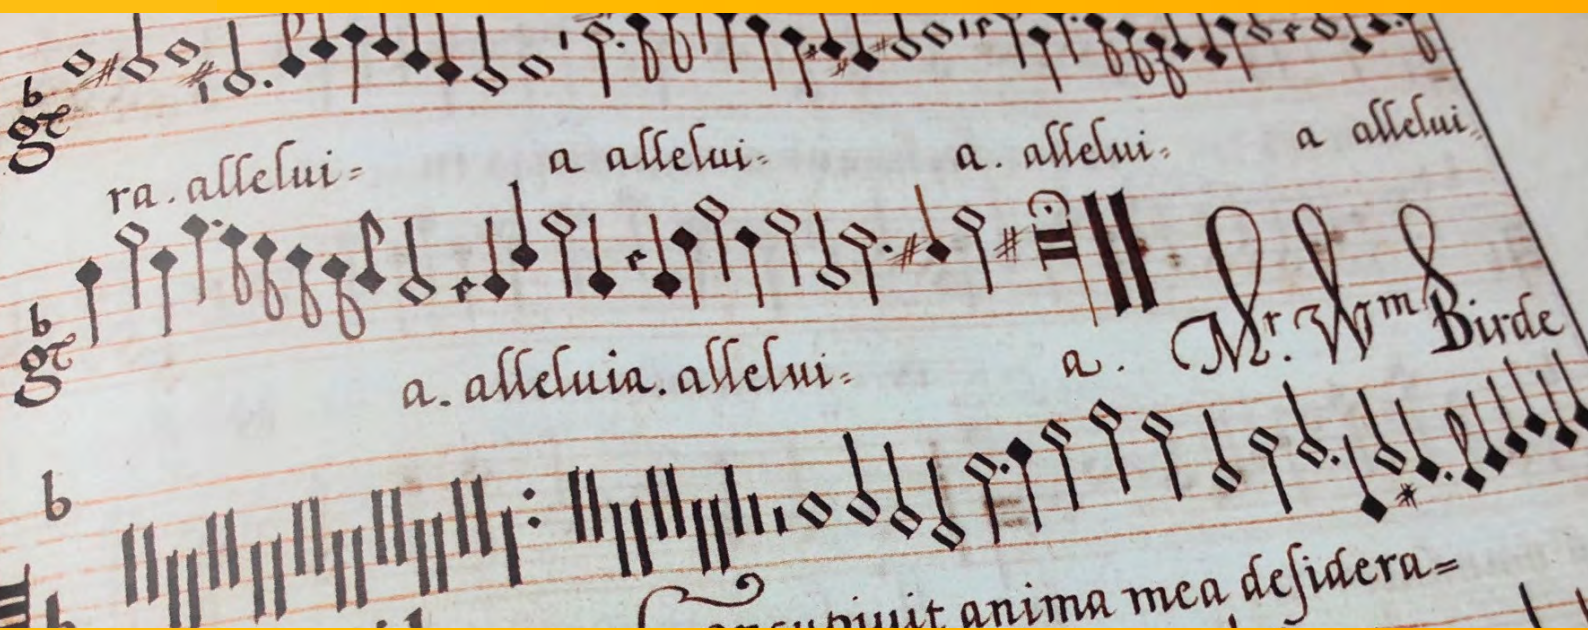 ra. allelui= a allelui= a. allelui= a allelui=
a. alleluia. allelui= a. Mr. Wm Birde
anima mea desidera=